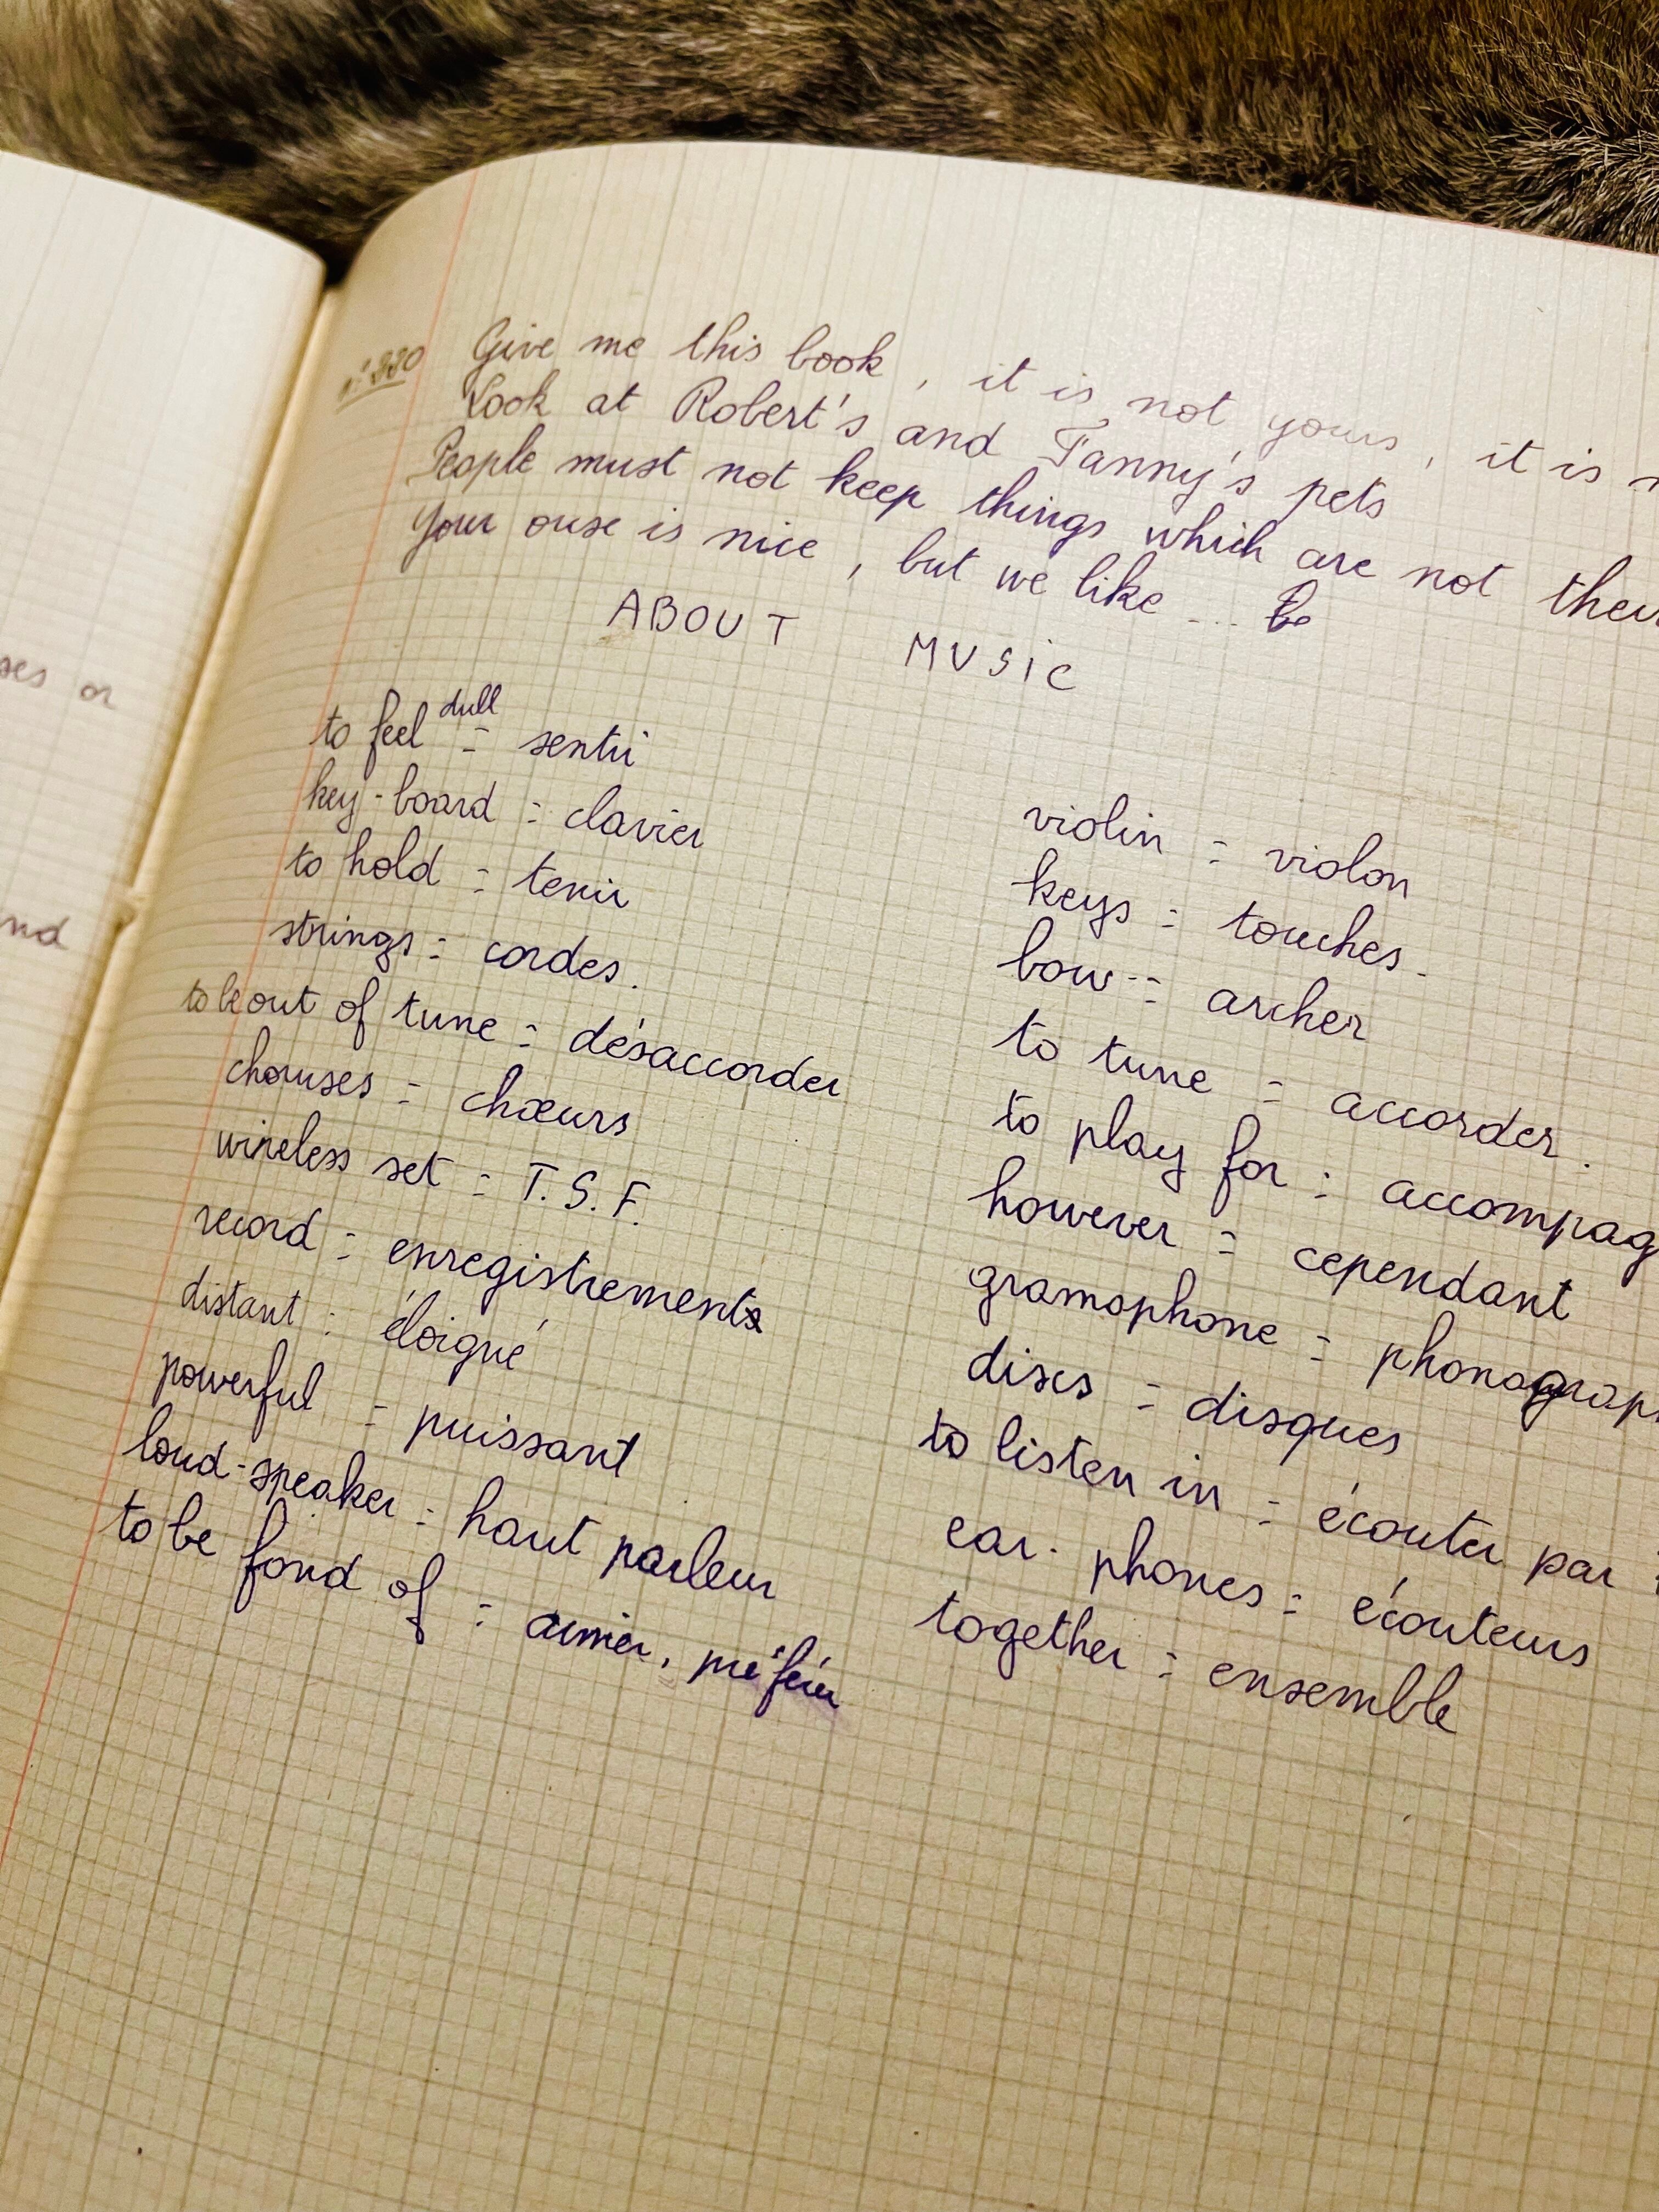 ses or
nd
n° 330 Give me this book, it is not yours, it is
Look at Robert's and Fanny's pets
People must not keep things which are not their
Your ouse is nice, but we like ... be
ABOUT MUSIC
to feel dull = sentir
key-board = clavier
to hold = tenir
strings = cordes.
to be out of tune = désaccorder
chouses = chœurs
wireless set = T.S.F.
record = enregistrements
distant : éloigné
powerful = puissant
loud-speaker = haut parleur
to be fond of = aimer, préférer
violin = violon
keys = touches.
bow = archer
to tune = accorder.
to play for : accompag
however = cependant
gramophone = phonograph
discs = disques
to listen in = écouter par
ear-phones = écouteurs
together = ensemble